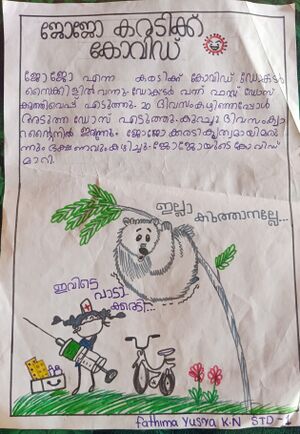 ജോജോ കരടിക്ക്
കോവിഡ്
ജോജോ എന്ന കരടിക്ക് കോവിഡ് ഡോക്ടർ
സൈക്കിളിൽ വന്നു. ഡോക്ടർ വന്ന് ഫസ്റ്റ് ഡോസ്
കുത്തിവെപ്പ് എടുത്തു. 20 ദിവസം കഴിഞ്ഞപ്പോൾ
അടുത്ത ഡോസ് എടുത്തു. കുറച്ചു ദിവസം ക്വാ
റന്റൈനിൽ ഇരുന്നു. ജോജോ കരടി കൃത്യമായി മരു
ന്നും ഭക്ഷണവും കഴിച്ചു. ജോജോയുടെ കോവിഡ്
മാറി.
ഇല്ലാ
കുത്താനല്ലേ...
ഇവിടെ
വാടാ
കരടീ...
Fathima Yusra K.N STD -